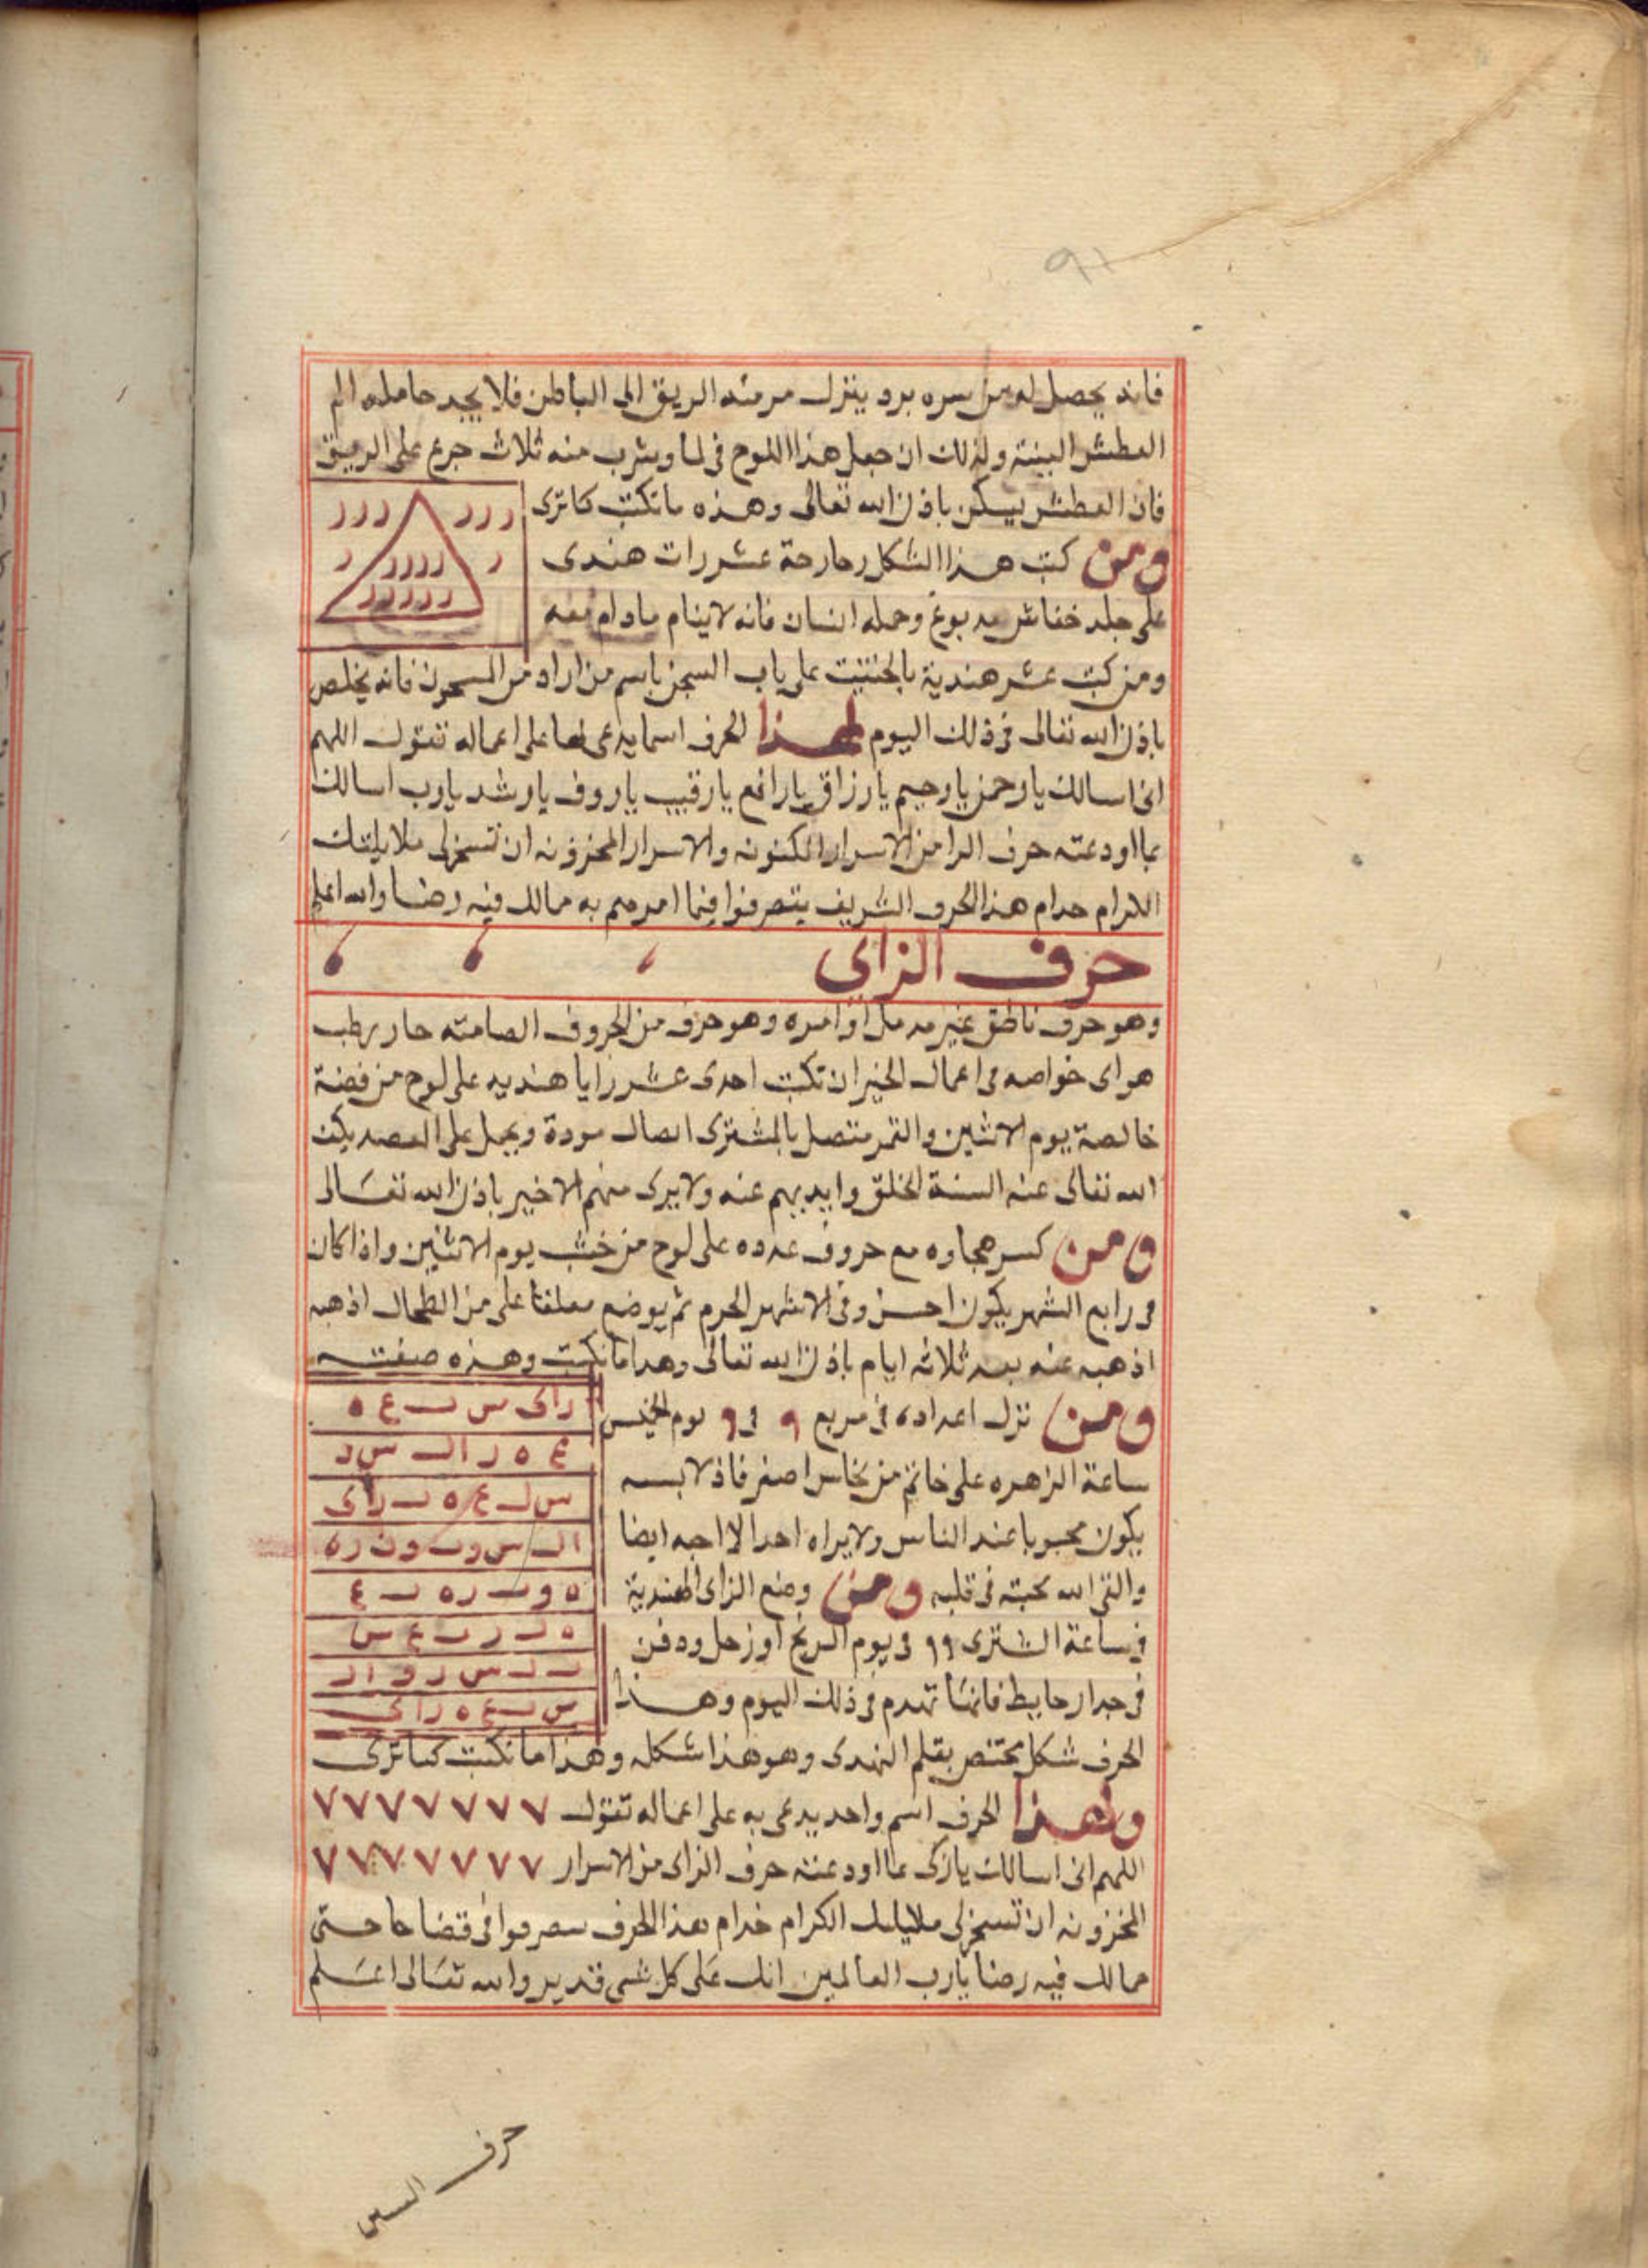 ٩١
فانه يحصل له من سره برد ينزل من منه الريق الى الباطن فلا يجد حامله الم
العطش البتة ولذلك ان جعل هذا اللوح في لما ويشرب منه ثلاث جرع على الريق
فان العطش يسكن باذن الله تعالى وهذه ما تكتب كما ترى
ر ر ر ر ر ر
ر ر ر ر ر ر
ر ر ر ر ر
ومن كتب هذا الشكل وخارجة عشر رات هندى
على جلد خفاش مدبوغ وحمله انسان فانه لا ينام مادام معه
ومن كتب عشر هندية على باب السجن باسم من اراد من المسجون فانه يخلص
باذن الله تعالى في ذلك اليوم لهذا الحرف اسما يدعى بها على اعماله تقول اللهم
انى اسالك يا رحمن يا رحيم يا رزاق يا رافع يا رقيب يا روف يا رشد يا رب اسالك
بما اودعته حرف الرا من الاسرار المكنونه والاسرار المخزونه ان تسخر لى ملايكتك
الكرام خدام هذا الحرف الشريف يتصرفوا فيما امرهم به ممالك فيه رضا والله اعلم
حرف الزاى
وهو حرف ناطق غير اوامره وهو حرف من الحروف الصامته حار رطب
هواى خواصه فى اعمال الخير ان تكتب احدى عشر زايا هنديه على لوح من فضة
خالصة يوم الاثنين والقمر متصل بالمشترى اتصال مودة ويحمل على العضد يكف
الله تعالى عنه السنة الخلق وايديهم عنه ولا يرى منهم الا خير باذن الله تعالى
ومن كسر هجاوه مع حروف عدده على لوح من خشب يوم الاثنين واذا كان
فى رابع الشهر يكون احسن وفى الاشهر الحرم ثم يوضع معلقا على من الطحال اذهبه
اذهبه عنه بعد ثلاثه ايام باذن الله تعالى وهذا ما تكتب وهذه صفته
ومن نزل اعداده فى مربع ٩ فى ٩ يوم الخيس
ساعة الزهره على خاتم من نخاس اصفر فاذ لابسه
يكون محبوبا عند الناس ولا يراه احدا الا احبه ايضا
والقى الله محبته فى قلبه ومن وضع الزاى الهندية
فى ساعة المشترى ٩٩ فى يوم المريخ او زحل ودفن
فى جدار حايط فانها تهدم فى ذلك اليوم وهذا
زاى س ب ع ه
س ب ع ه زاى
الحرف شكل مختص بقلم الهندى وهو هذا شكله وهذا ما تكتب كما ترى
ولهذا الحرف اسم واحد يدعى به على اعماله تقول ٧ ٧ ٧ ٧ ٧ ٧ ٧
اللهم انى اسالك يا زكى بما اودعته حرف الزاى من الاسرار ٧ ٧ ٧ ٧ ٧ ٧ ٧
المخزونه ان تسخر لى ملايكتك الكرام خدام هذا الحرف يتصرفوا فى قضا حاجتى
ممالك فيه رضا يا رب العالمين انك على كل شى قدير والله تعالى اعلم
حرف السين